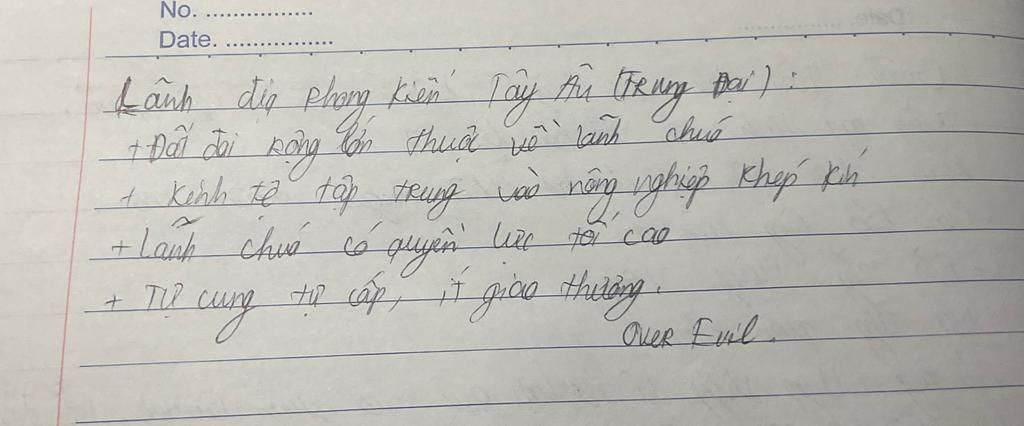 No. ................
Date. ................
Lãnh địa phong kiến Tây Âu (Trung Đại) :
+ Đất đai rộng lớn thuộc về lãnh chúa
+ Kinh tế tập trung vào nông nghiệp khép kín
+ Lãnh chúa có quyền lực tối cao
+ Tự cung tự cấp, ít giao thương.
Over Evil.